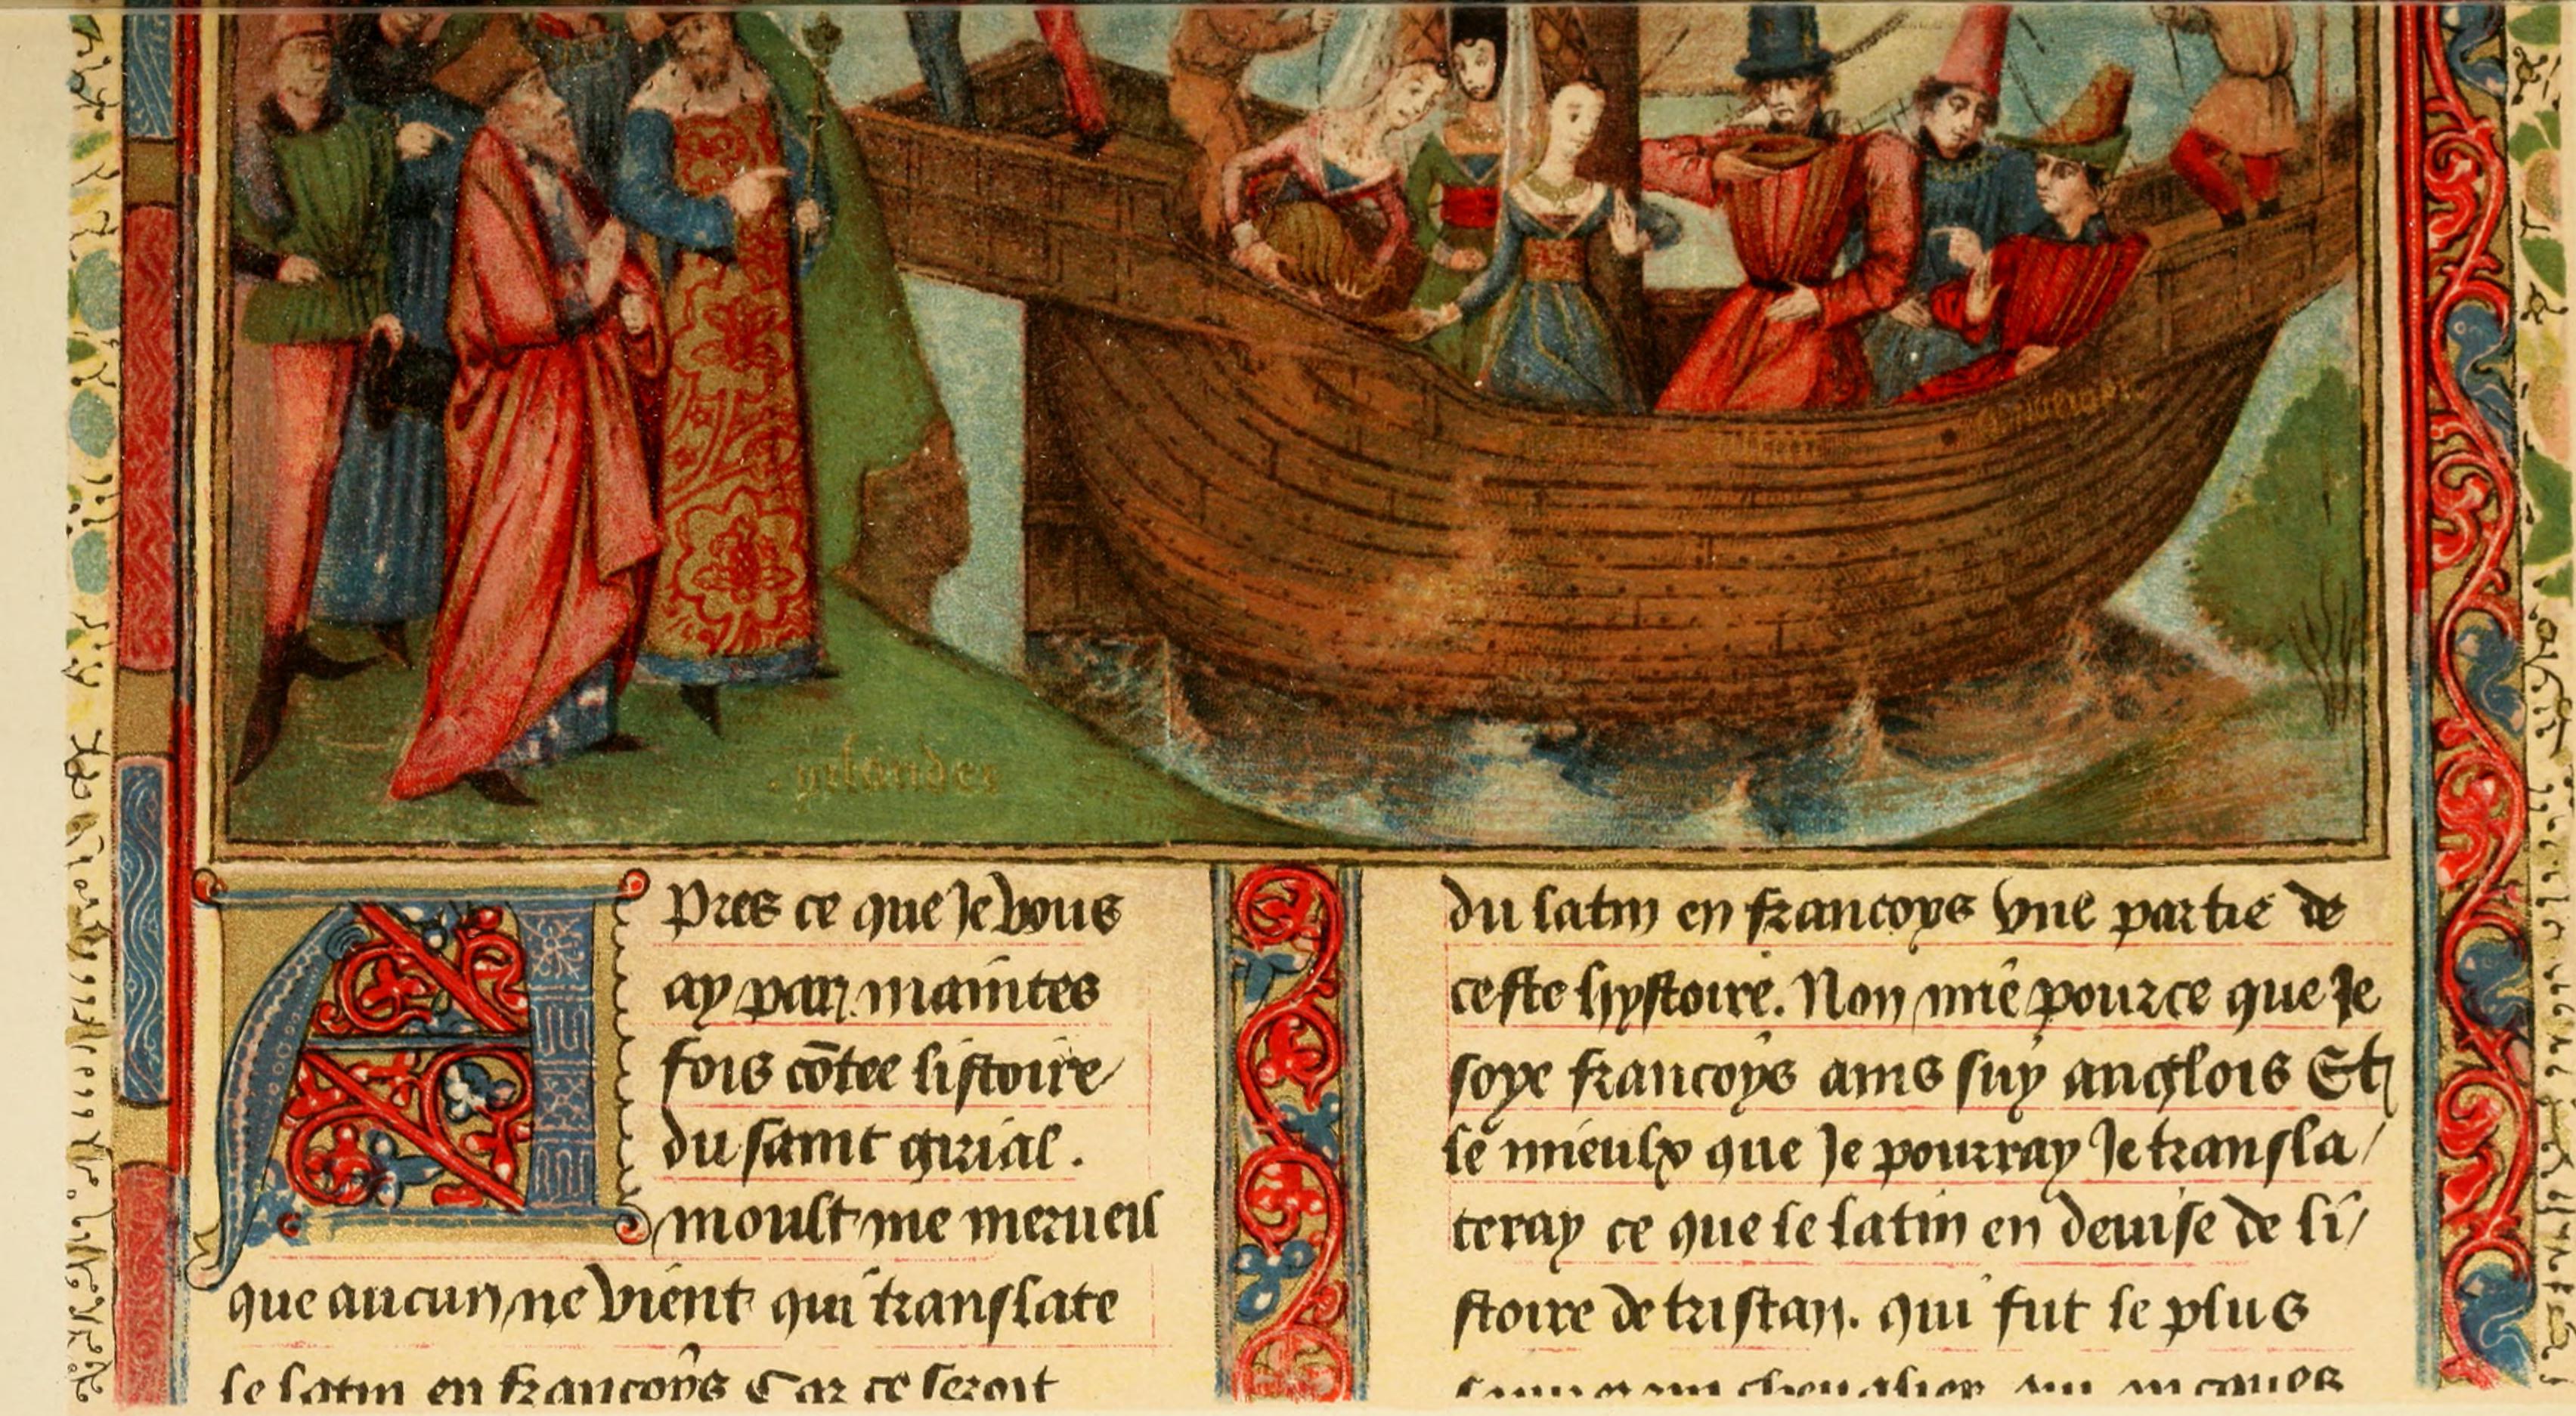 yrlandes
Apres ce que Je vous
ay par maintes
fois cōtee listoire
du saint graal.
moult me merueil
que aucun ne vient qui translate
le latin en francoys Car ce seroit
du latin en francoys vne partie de
ceste hystoire. Non mie pource que Je
soye francoys ains suy anglois Et
le mieulx que Je pourray Je transla/
teray ce que le latin en deuise de li/
stoire de tristan. qui fut le plus